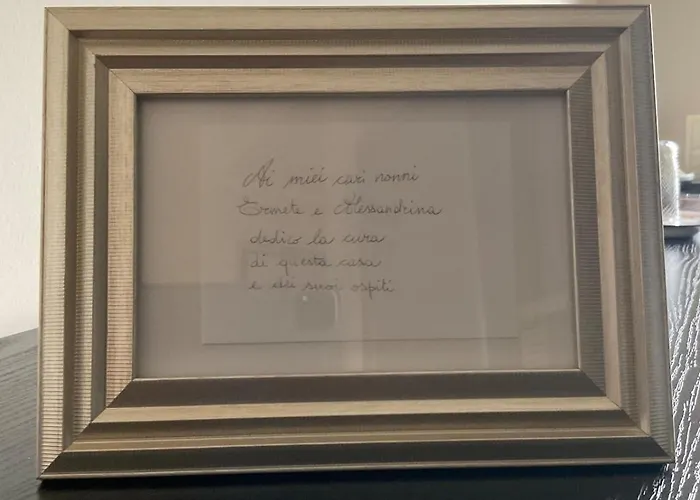 Ai miei cari nonni
Ermete e Alessandrina
dedico la cura
di questa casa
e dei suoi ospiti